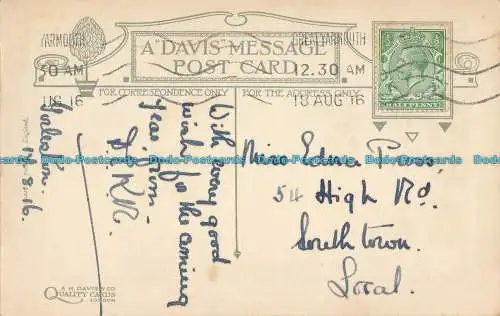 YARMOUTH
30 AM
UG 16
A "DAVIS" MESSAGE
POST CARD
GREAT YARMOUTH
12.30 AM
18 AUG 16
HALFPENNY
FOR CORRESPONDENCE ONLY
FOR THE ADDRESS ONLY
With every good
wish for the coming
Year, from
Gorleston
17.8.16.
Miss Edna
54 High Rd.
Southtown.
Local.
Dodo-Postcards Dodo-Postcards Dodo-Postcards Dodo-Postcards
A.M. DAVIS & CO
QUALITY CARDS
LONDON